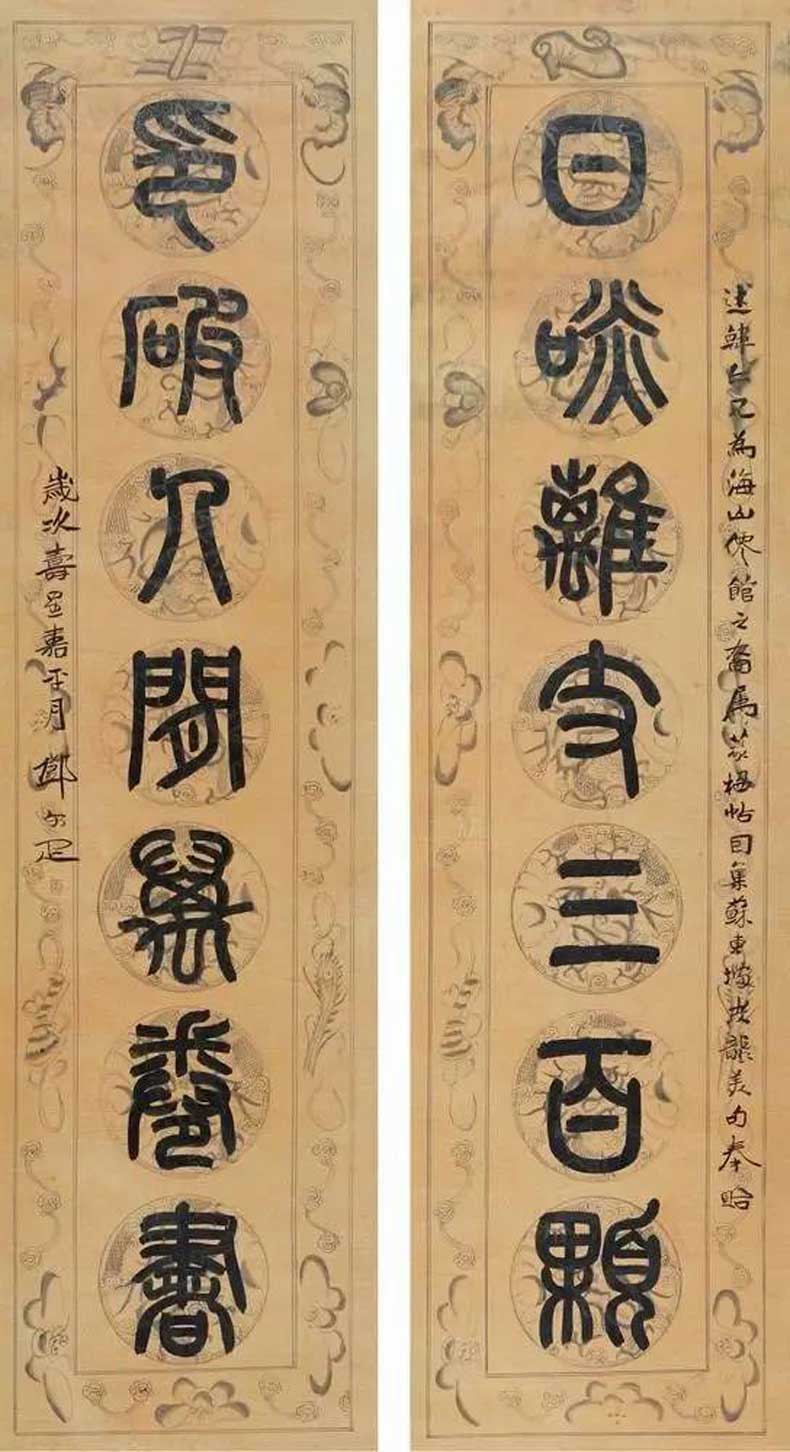 日啖離支三百顆
述韓仁兄為海山僊館之裔屬篆楹帖因集蘇東坡龔美句奉貽
印破人間萬卷書
歲次壽星嘉平月 鄧尔疋